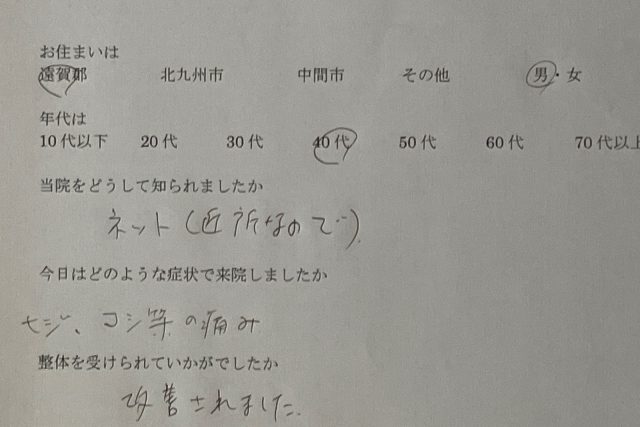 お住まいは
遠賀郡 北九州市 中間市 その他 男・女
年代は
10代以下 20代 30代 40代 50代 60代 70代以上
当院をどうして知られましたか
ネット(近所なので)
今日はどのような症状で来院しましたか
セジ、コシ等の痛み
整体を受けられていかがでしたか
改善されました。